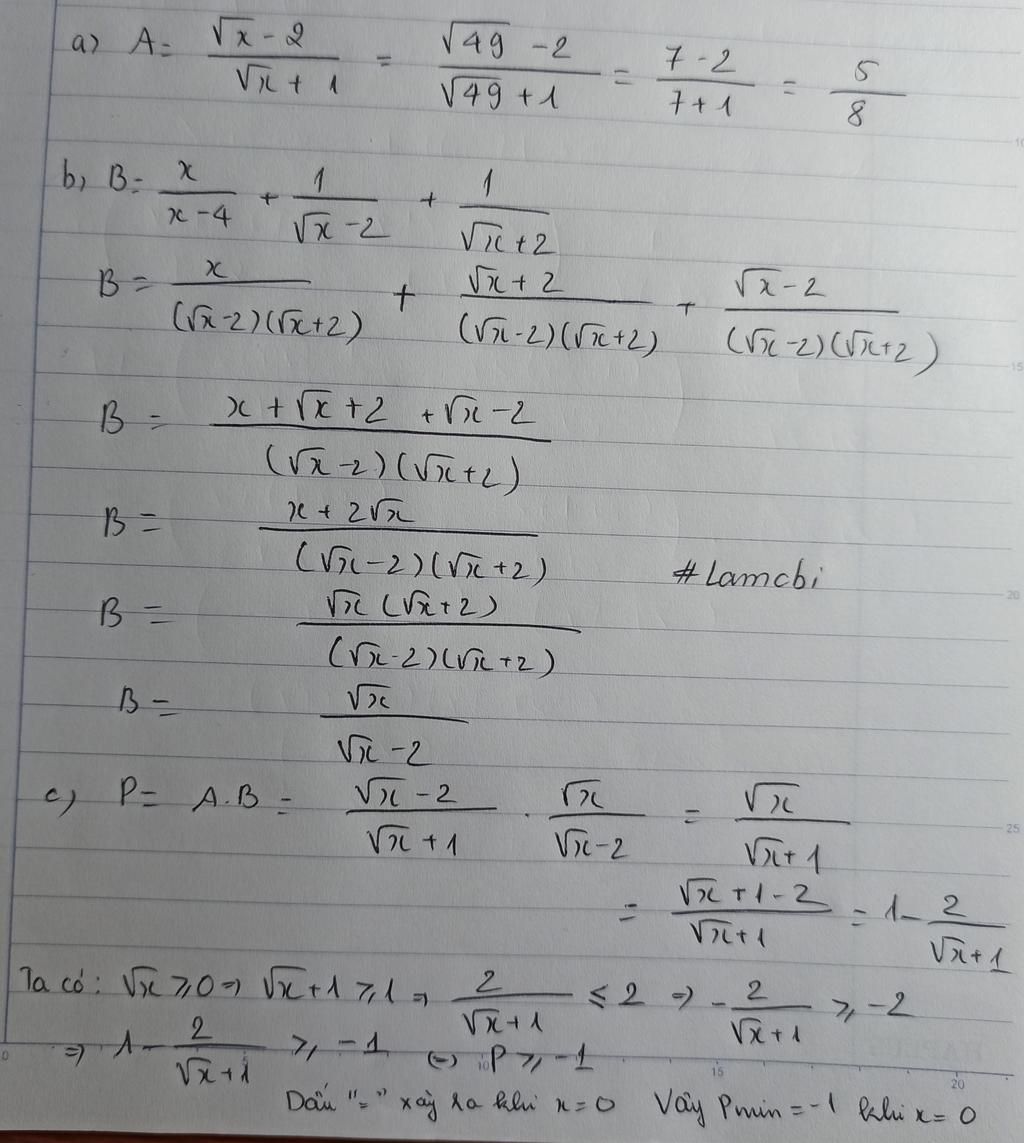 a) A = (√x - 2)/(√x + 1) = (√49 - 2)/(√49 + 1) = (7 - 2)/(7 + 1) = 5/8
b, B = x/(x - 4) + 1/(√x - 2) + 1/(√x + 2)
B = x/((√x - 2)(√x + 2)) + (√x + 2)/((√x - 2)(√x + 2)) + (√x - 2)/((√x - 2)(√x + 2))
B = (x + √x + 2 + √x - 2)/((√x - 2)(√x + 2))
B = (x + 2√x)/((√x - 2)(√x + 2))
#Lamcbi
B = (√x (√x + 2))/((√x - 2)(√x + 2))
B = √x/(√x - 2)
c) P = A.B = (√x - 2)/(√x + 1) . √x/(√x - 2) = √x/(√x + 1)
= (√x + 1 - 2)/(√x + 1) = 1 - 2/(√x + 1)
Ta có: √x ≥ 0 ⇒ √x + 1 ≥ 1 ⇒ 2/(√x + 1) ≤ 2 ⇒ - 2/(√x + 1) ≥ -2
⇒ 1 - 2/(√x + 1) ≥ -1 (=) P ≥ -1
Dấu "=" xảy ra khi x = 0 Vậy Pmin = -1 khi x = 0
0 10 15 20
10
15
20
25